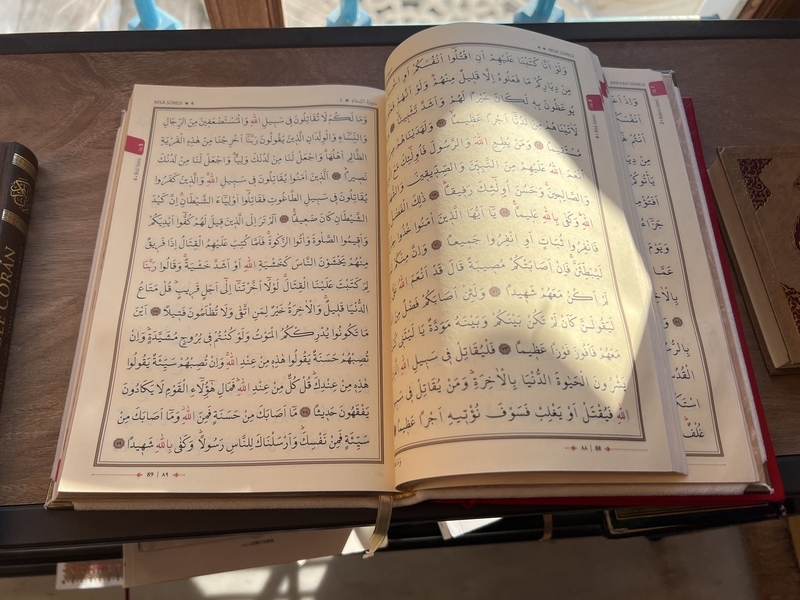 NİSÂ SÛRESİ ● 4
4 ● سُورَةُ النِّسَاءِ
وَلَوْ اَنَّا كَتَبْنَا عَلَيْهِمْ اَنِ اقْتُلُٓوا اَنْفُسَكُمْ اَوِ
مِنْ دِيَارِكُمْ مَا فَعَلُوهُ اِلَّا قَلِيلٌ مِنْهُمْ وَلَوْ اَنَّهُمْ
يُوعَظُونَ بِهِ لَكَانَ خَيْرًا لَهُمْ وَاَشَدَّ تَثْبِيتًا
لَاٰتَيْنَاهُمْ مِنْ لَدُنَّٓا اَجْرًا عَظِيمًا وَلَهَدَيْنَاهُمْ
مُسْتَقِيمًا وَمَنْ يُطِعِ اللّٰهَ وَالرَّسُولَ فَاُولٰٓئِكَ مَعَ
اَنْعَمَ اللّٰهُ عَلَيْهِمْ مِنَ النَّبِيّٖنَ وَالصِّدّٖيقٖينَ
وَالصَّالِحٖينَ وَحَسُنَ اُولٰٓئِكَ رَفٖيقًا ذٰلِكَ الْفَضْلُ
اللّٰهِ وَكَفٰى بِاللّٰهِ عَلٖيمًا يَٓا اَيُّهَا الَّذٖينَ اٰمَنُوا خُذُوا
فَانْفِرُوا ثُبَاتٍ اَوِ انْفِرُوا جَمٖيعًا وَاِنَّ مِنْكُمْ
لَيُبَطِّئَنَّ فَاِنْ اَصَابَتْكُمْ مُصٖيبَةٌ قَالَ قَدْ اَنْعَمَ اللّٰهُ
لَمْ اَكُنْ مَعَهُمْ شَهٖيدًا وَلَئِنْ اَصَابَكُمْ فَضْلٌ مِنَ
لَيَقُولَنَّ كَاَنْ لَمْ تَكُنْ بَيْنَكُمْ وَبَيْنَهُ مَوَدَّةٌ يَا لَيْتَنٖي
مَعَهُمْ فَاَفُوزَ فَوْزًا عَظٖيمًا فَلْيُقَاتِلْ فٖي سَبٖيلِ اللّٰهِ
يَشْرُونَ الْحَيٰوةَ الدُّنْيَا بِالْاٰخِرَةِ وَمَنْ يُقَاتِلْ فٖي
اللّٰهِ فَيُقْتَلْ اَوْ يَغْلِبْ فَسَوْفَ نُؤْتٖيهِ اَجْرًا عَظٖيمًا
٨٨ | 88
NİSÂ SÛRESİ ● 4
٤ ● سُورَةُ النِّسَاءِ
وَمَا لَكُمْ لَا تُقَاتِلُونَ فٖي سَبٖيلِ اللّٰهِ وَالْمُسْتَضْعَفٖينَ مِنَ الرِّجَالِ
وَالنِّسَٓاءِ وَالْوِلْدَانِ الَّذٖينَ يَقُولُونَ رَبَّنَٓا اَخْرِجْنَا مِنْ هٰذِهِ الْقَرْيَةِ
الظَّالِمِ اَهْلُهَا وَاجْعَلْ لَنَا مِنْ لَدُنْكَ وَلِيًّا وَاجْعَلْ لَنَا مِنْ لَدُنْكَ
نَصٖيرًا اَلَّذٖينَ اٰمَنُوا يُقَاتِلُونَ فٖي سَبٖيلِ اللّٰهِ وَالَّذٖينَ كَفَرُوا
يُقَاتِلُونَ فٖي سَبٖيلِ الطَّاغُوتِ فَقَاتِلُٓوا اَوْلِيَٓاءَ الشَّيْطَانِ اِنَّ كَيْدَ
الشَّيْطَانِ كَانَ ضَعٖيفًا اَلَمْ تَرَ اِلَى الَّذٖينَ قٖيلَ لَهُمْ كُفُّٓوا اَيْدِيَكُمْ
وَاَقٖيمُوا الصَّلٰوةَ وَاٰتُوا الزَّكٰوةَ فَلَمَّا كُتِبَ عَلَيْهِمُ الْقِتَالُ اِذَا فَرٖيقٌ
مِنْهُمْ يَخْشَوْنَ النَّاسَ كَخَشْيَةِ اللّٰهِ اَوْ اَشَدَّ خَشْيَةً وَقَالُوا رَبَّنَا
لِمَ كَتَبْتَ عَلَيْنَا الْقِتَالَ لَوْلَٓا اَخَّرْتَنَٓا اِلٰٓى اَجَلٍ قَرٖيبٍ قُلْ مَتَاعُ
الدُّنْيَا قَلٖيلٌ وَالْاٰخِرَةُ خَيْرٌ لِمَنِ اتَّقٰى وَلَا تُظْلَمُونَ فَتٖيلًا اَيْنَ
مَا تَكُونُوا يُدْرِكْكُمُ الْمَوْتُ وَلَوْ كُنْتُمْ فٖي بُرُوجٍ مُشَيَّدَةٍ وَاِنْ
تُصِبْهُمْ حَسَنَةٌ يَقُولُوا هٰذِهٖ مِنْ عِنْدِ اللّٰهِ وَاِنْ تُصِبْهُمْ سَيِّئَةٌ يَقُولُوا
هٰذِهٖ مِنْ عِنْدِكَ قُلْ كُلٌّ مِنْ عِنْدِ اللّٰهِ فَمَالِ هٰٓؤُلَٓاءِ الْقَوْمِ لَا يَكَادُونَ
يَفْقَهُونَ حَدٖيثًا مَٓا اَصَابَكَ مِنْ حَسَنَةٍ فَمِنَ اللّٰهِ وَمَٓا اَصَابَكَ مِنْ
سَيِّئَةٍ فَمِنْ نَفْسِكَ وَاَرْسَلْنَاكَ لِلنَّاسِ رَسُولًا وَكَفٰى بِاللّٰهِ شَهٖيدًا
89 | ٨٩
BAKARA SÛRESİ
وَاِذْ
اَنْتُمْ
يَأْتُوكُمْ
جَزَٓاءُ
وَيَوْمَ
عَمَّا
غُلْفٌ
CORAN